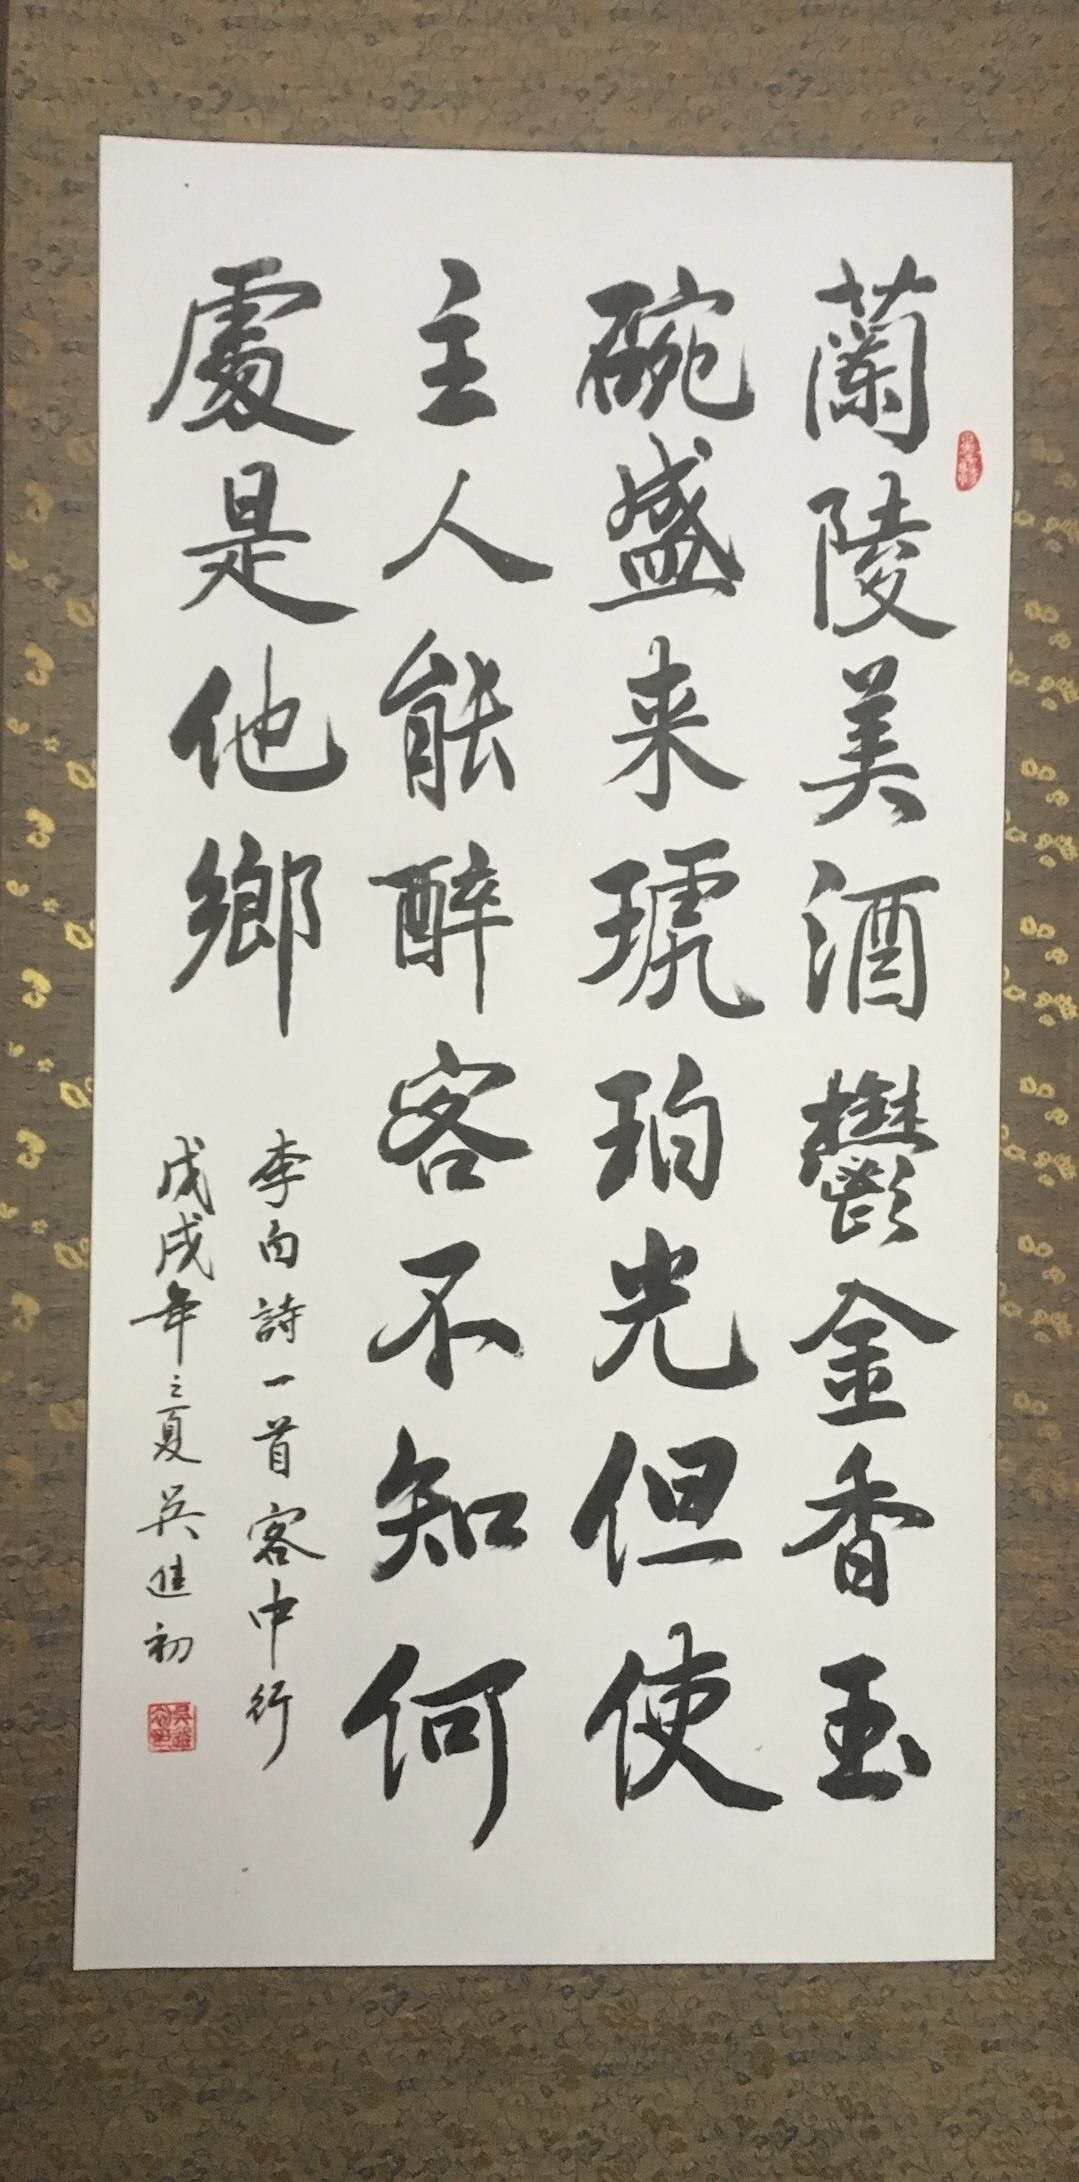 蘭陵美酒鬱金香玉
碗盛来琥珀光但使
主人能醉客不知何
處是他鄉
李白詩一首客中行
戊戌年之夏吴進初